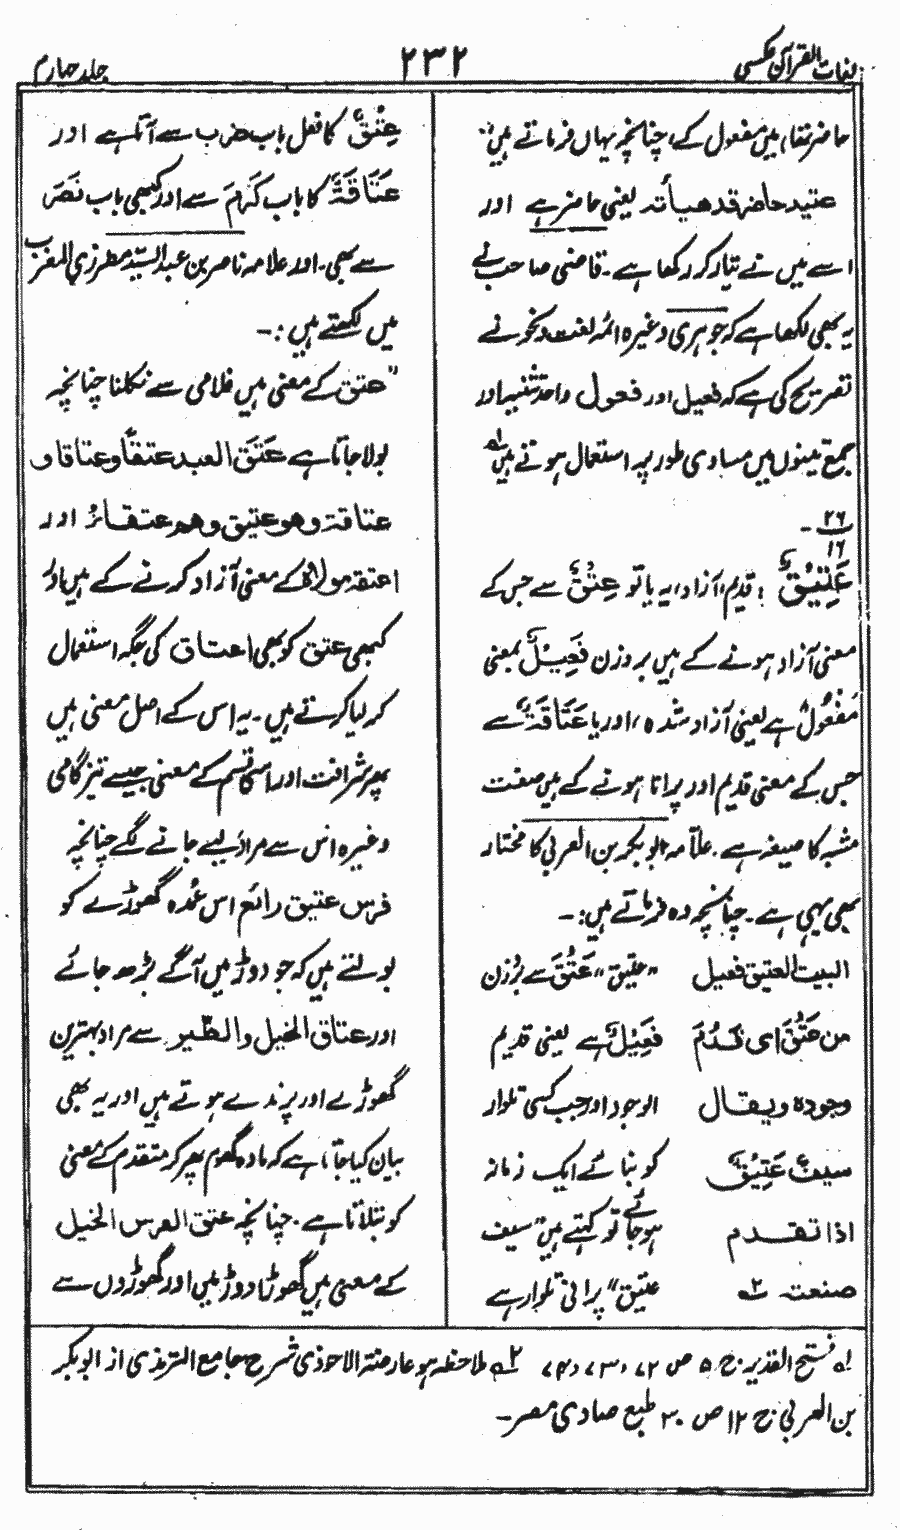 لغات القرآن عکسی
۲۳۲
جلد چہارم
حاضر تھا، میں مفعول کے، چنانچہ یہاں فرماتے ہیں:
عتید حاضر قد هیأته یعنی حاضر ہے اور
اسے میں نے تیار کر رکھا ہے۔ قاضی صاحب نے
یہ بھی لکھا ہے کہ جوہری وغیرہ ائمہ لغت و نحو نے
تصریح کی ہے کہ فعیل اور فعول واحد تثنیہ اور
جمع تینوں میں مساوی طور پر استعمال ہوتے ہیں لہ
۲۶
۱۶ ۔
عَتِيْقٌ : قدیم، آزاد، یہ یا تو عِتْقٌ سے جس کے
معنی آزاد ہونے کے ہیں بروزن فَعِيْلٌ بمعنی
مَفْعُوْلٌ ہے یعنی آزاد شدہ، اور یا عَتَاقَةٌ سے
جس کے معنی قدیم اور پرانا ہونے کے ہیں صفت
مشبہ کا صیغہ ہے۔ علامہ ابوبکر بن العربی کا مختار
بھی یہی ہے۔ چنانچہ وہ فرماتے ہیں:۔
البيت العتيق فعيل "عتیق" عَتُقَ سے بروزن
من عَتُقَ اى قَدُمَ فَعِيْلٌ ہے یعنی قدیم
وجوده ويقال الوجود اور جب کسی تلوار
سيف عَتِيْقٌ کو بنائے ایک زمانہ
اذا تقدم ہو جائے تو کہتے ہیں "سیف
صنعته ۲ہ عتیق" پرانی تلوار ہے
عِتْقٌ کا فعل باب ضرب سے آتا ہے اور
عَتَاقَةٌ کا باب کَرُمَ سے اور کبھی باب نَصَرَ
سے بھی۔ اور علامہ ناصر بن عبد السید مطرزی المغرب
میں لکھتے ہیں:۔
"عتق کے معنی ہیں غلامی سے نکلنا چنانچہ
بولا جاتا ہے عَتَقَ العبد عتقاً وعتاقا و
عتاقة وهو عتيق وهم عتقاء اور
اعتقه مولاه کے معنی آزاد کرنے کے ہیں اور
کبھی عتق کو بھی اعتاق کی جگہ استعمال
کر لیا کرتے ہیں۔ یہ اس کے اصل معنی ہیں
پھر شرافت اور اسی قسم کے معنی جیسے تیز گامی
وغیرہ اس سے مراد لیے جانے لگے چنانچہ
فرس عتيق رائع اس عمدہ گھوڑے کو
بولتے ہیں کہ جو دوڑ میں آگے بڑھ جائے
اور عتاق الخيل والطير سے مراد بہترین
گھوڑے اور پرندے ہوتے ہیں اور یہ بھی
بیان کیا جاتا ہے کہ مادہ گھوم پھر کر متقدم کے معنی
کو بتلاتا ہے۔ چنانچہ عتق الفرس الخيل
کے معنی ہیں گھوڑا دوڑ میں اور گھوڑوں سے
لہ فتح القدیر ج ۵ ص ۷۲، ۷۳ و ۷۴ ۲ہ ملاحظہ ہو عارضۃ الاحوذی شرح جامع الترمذی از ابوبکر
بن العربی ج ۱۲ ص ۲۰ طبع صادی مصر۔